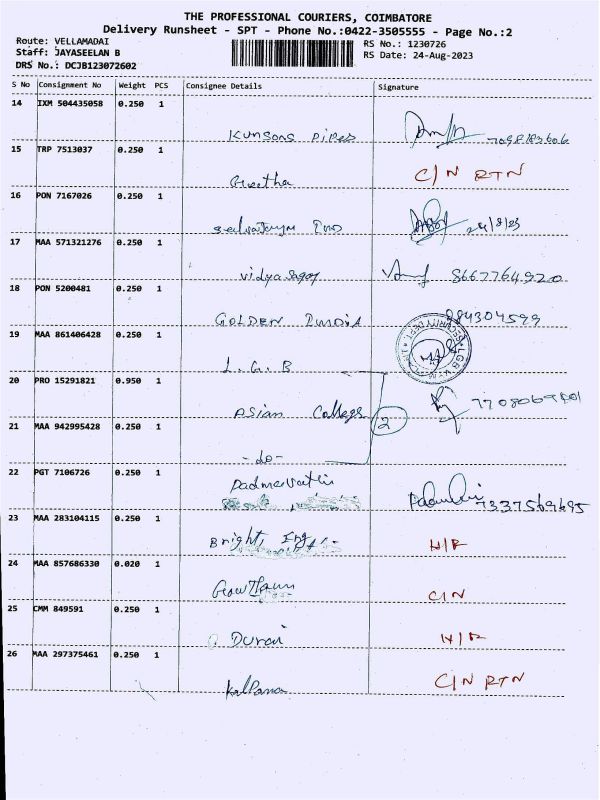 THE PROFESSIONAL COURIERS, COIMBATORE
Delivery Runsheet - SPT - Phone No.:0422-3505555 - Page No.:2
Route: VELLAMADAI
Staff: JAYASEELAN B
DRS No.: DCJB123072602
RS No.: 1230726
RS Date: 24-Aug-2023
S No Consignment No Weight PCS Consignee Details Signature
14 IXM 504435058 0.250 1
Kunsons Pipes
15 TRP 7513037 0.250 1
Geetha C/N RTN
16 PON 7167026 0.250 1
24/8/23
17 MAA 571321276 0.250 1
Vidya Sagar 8667764920
18 PON 5200481 0.250 1
GOLDEN INDIA 984304599
19 MAA 861406428 0.250 1
L.G.B
20 PRO 15291821 0.950 1
Asian College 2
21 MAA 942995428 0.250 1
-do-
22 PGT 7106726 0.250 1
Padmavathi
23 MAA 283104115 0.250 1
Bright Eng N/R
24 MAA 857686330 0.020 1
Gowtham C/N
25 CMM 849591 0.250 1
Durai N/R
26 MAA 297375461 0.250 1
Kalpana C/N RTN